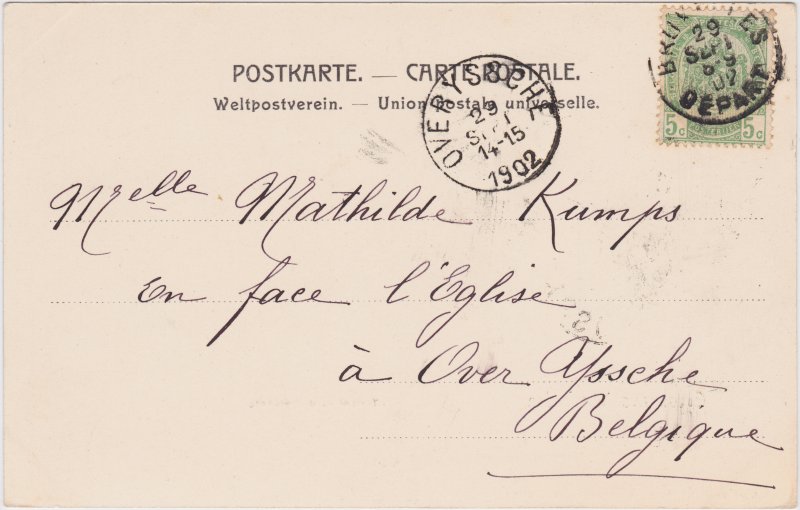 POSTKARTE. — CARTE POSTALE.
Weltpostverein. — Union postale universelle.
BRUXELLES
29
SEPT
8
1902
DÉPART
5c 5c
OVERYSSCHE
29
SEPT
14-15
1902
Melle Mathilde Kumps
En face l'Eglise
à Over Yssche
Belgique